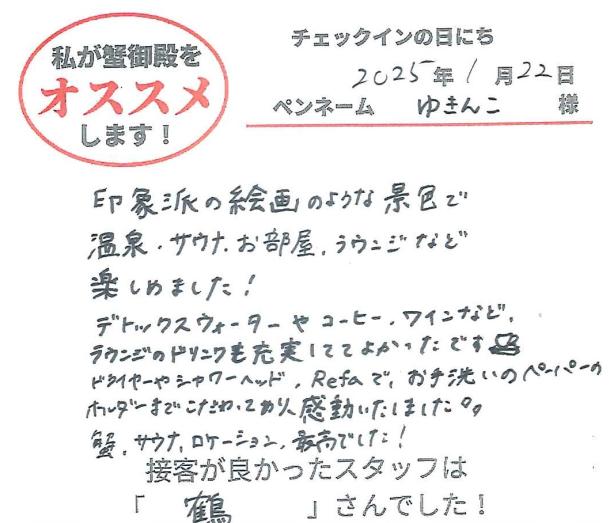 私が蟹御殿を
オススメ
します！
チェックインの日にち
2025年1月22日
ペンネーム ゆきんこ 様
印象派の絵画のような景色で
温泉、サウナ、お部屋、ラウンジなど
楽しめました！
デトックスウォーターやコーヒー、ワインなど、
ラウンジのドリンクも充実しててよかったです
ドライヤーやシャワーヘッド、Refaで、お手洗いのペーパーの
ホルダーまでこだわってあり、感動いたしました。
蟹、サウナ、ロケーション、最高でした！
接客が良かったスタッフは
「 鶴 」さんでした！